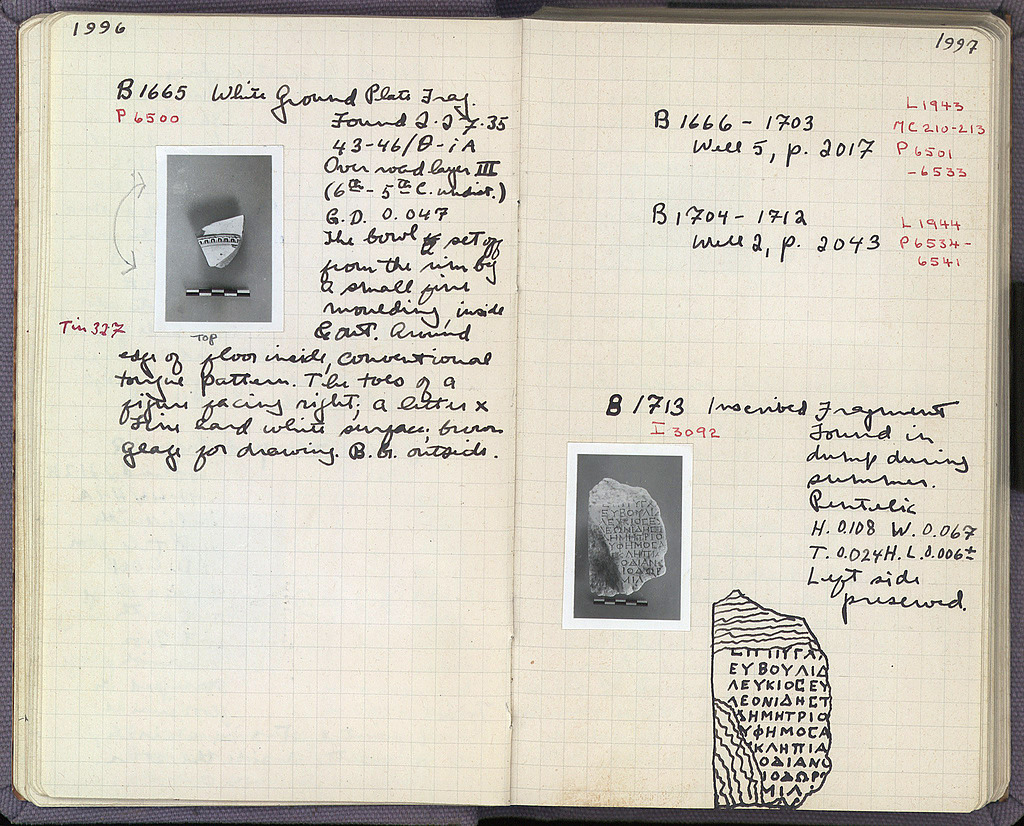 1996
B 1665 White Ground Plate Frag.
P 6500
Found 2.27.35
43-46/Θ-ιΑ
Over road layer III
(6th-5th C. undist.)
G.D. 0.047
The bowl is set off
from the rim by
a small fine
moulding, inside
& out. Around
Tin 327
TOP
edge of floor inside, conventional
tongue pattern. The toes of a
figure facing right; a letter x
Fine hard white surface; brown
glaze for drawing. B.G. outside.
1997
B 1666 - 1703
Well 5, p. 2017
L 1943
MC 210-213
P 6501
-6533
B 1704 - 1712
Well 2, p. 2043
L 1944
P 6534-
6541
B 1713 Inscribed Fragment
I 3092
Found in
dump during
summer.
Pentelic
H. 0.108 W. 0.067
T. 0.024 H.L. 0.006±
Left side
preserved.
ΕΥΒΟΥΛΙΔ
ΛΕΥΚΙΟϹΕΥ
ΛΕΟΝΙΔΗϹΤ
ΔΗΜΗΤΡΙΟ
ΥΦΗΜΟϹΑ
ΚΛΗΠΙΑ
ΟΔΙΑΝΟ
ΙΟΔΩΡ
ΜΙΛ